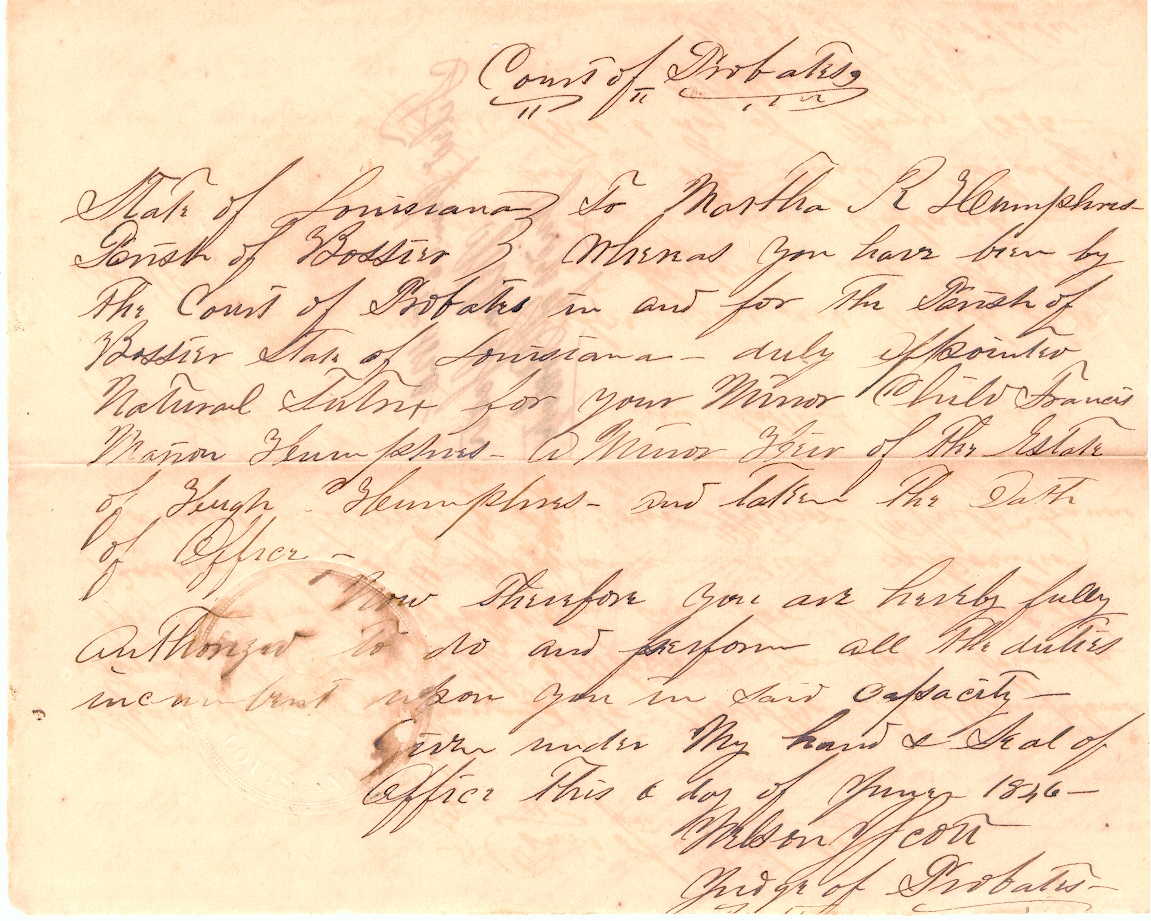 Court of Probates
State of Louisiana } To Martha R Humphres
Parish of Bossier } Whereas you have been by
the Court of Probates in and for the Parish of
Bossier State of Louisiana - duly appointed
Natural Tutrix for your Minor Child Francis
Marion Humphres - A Minor Heir of the Estate
of Hugh Humphres - and taken the Oath
of Office -
Now Therefore you are hereby fully
Authorized to do and perform all the duties
incumbent upon you in said capacity -
Given under My hand & Seal of
Office This 6 day of June 1846 -
Scott
Judge of Probates -